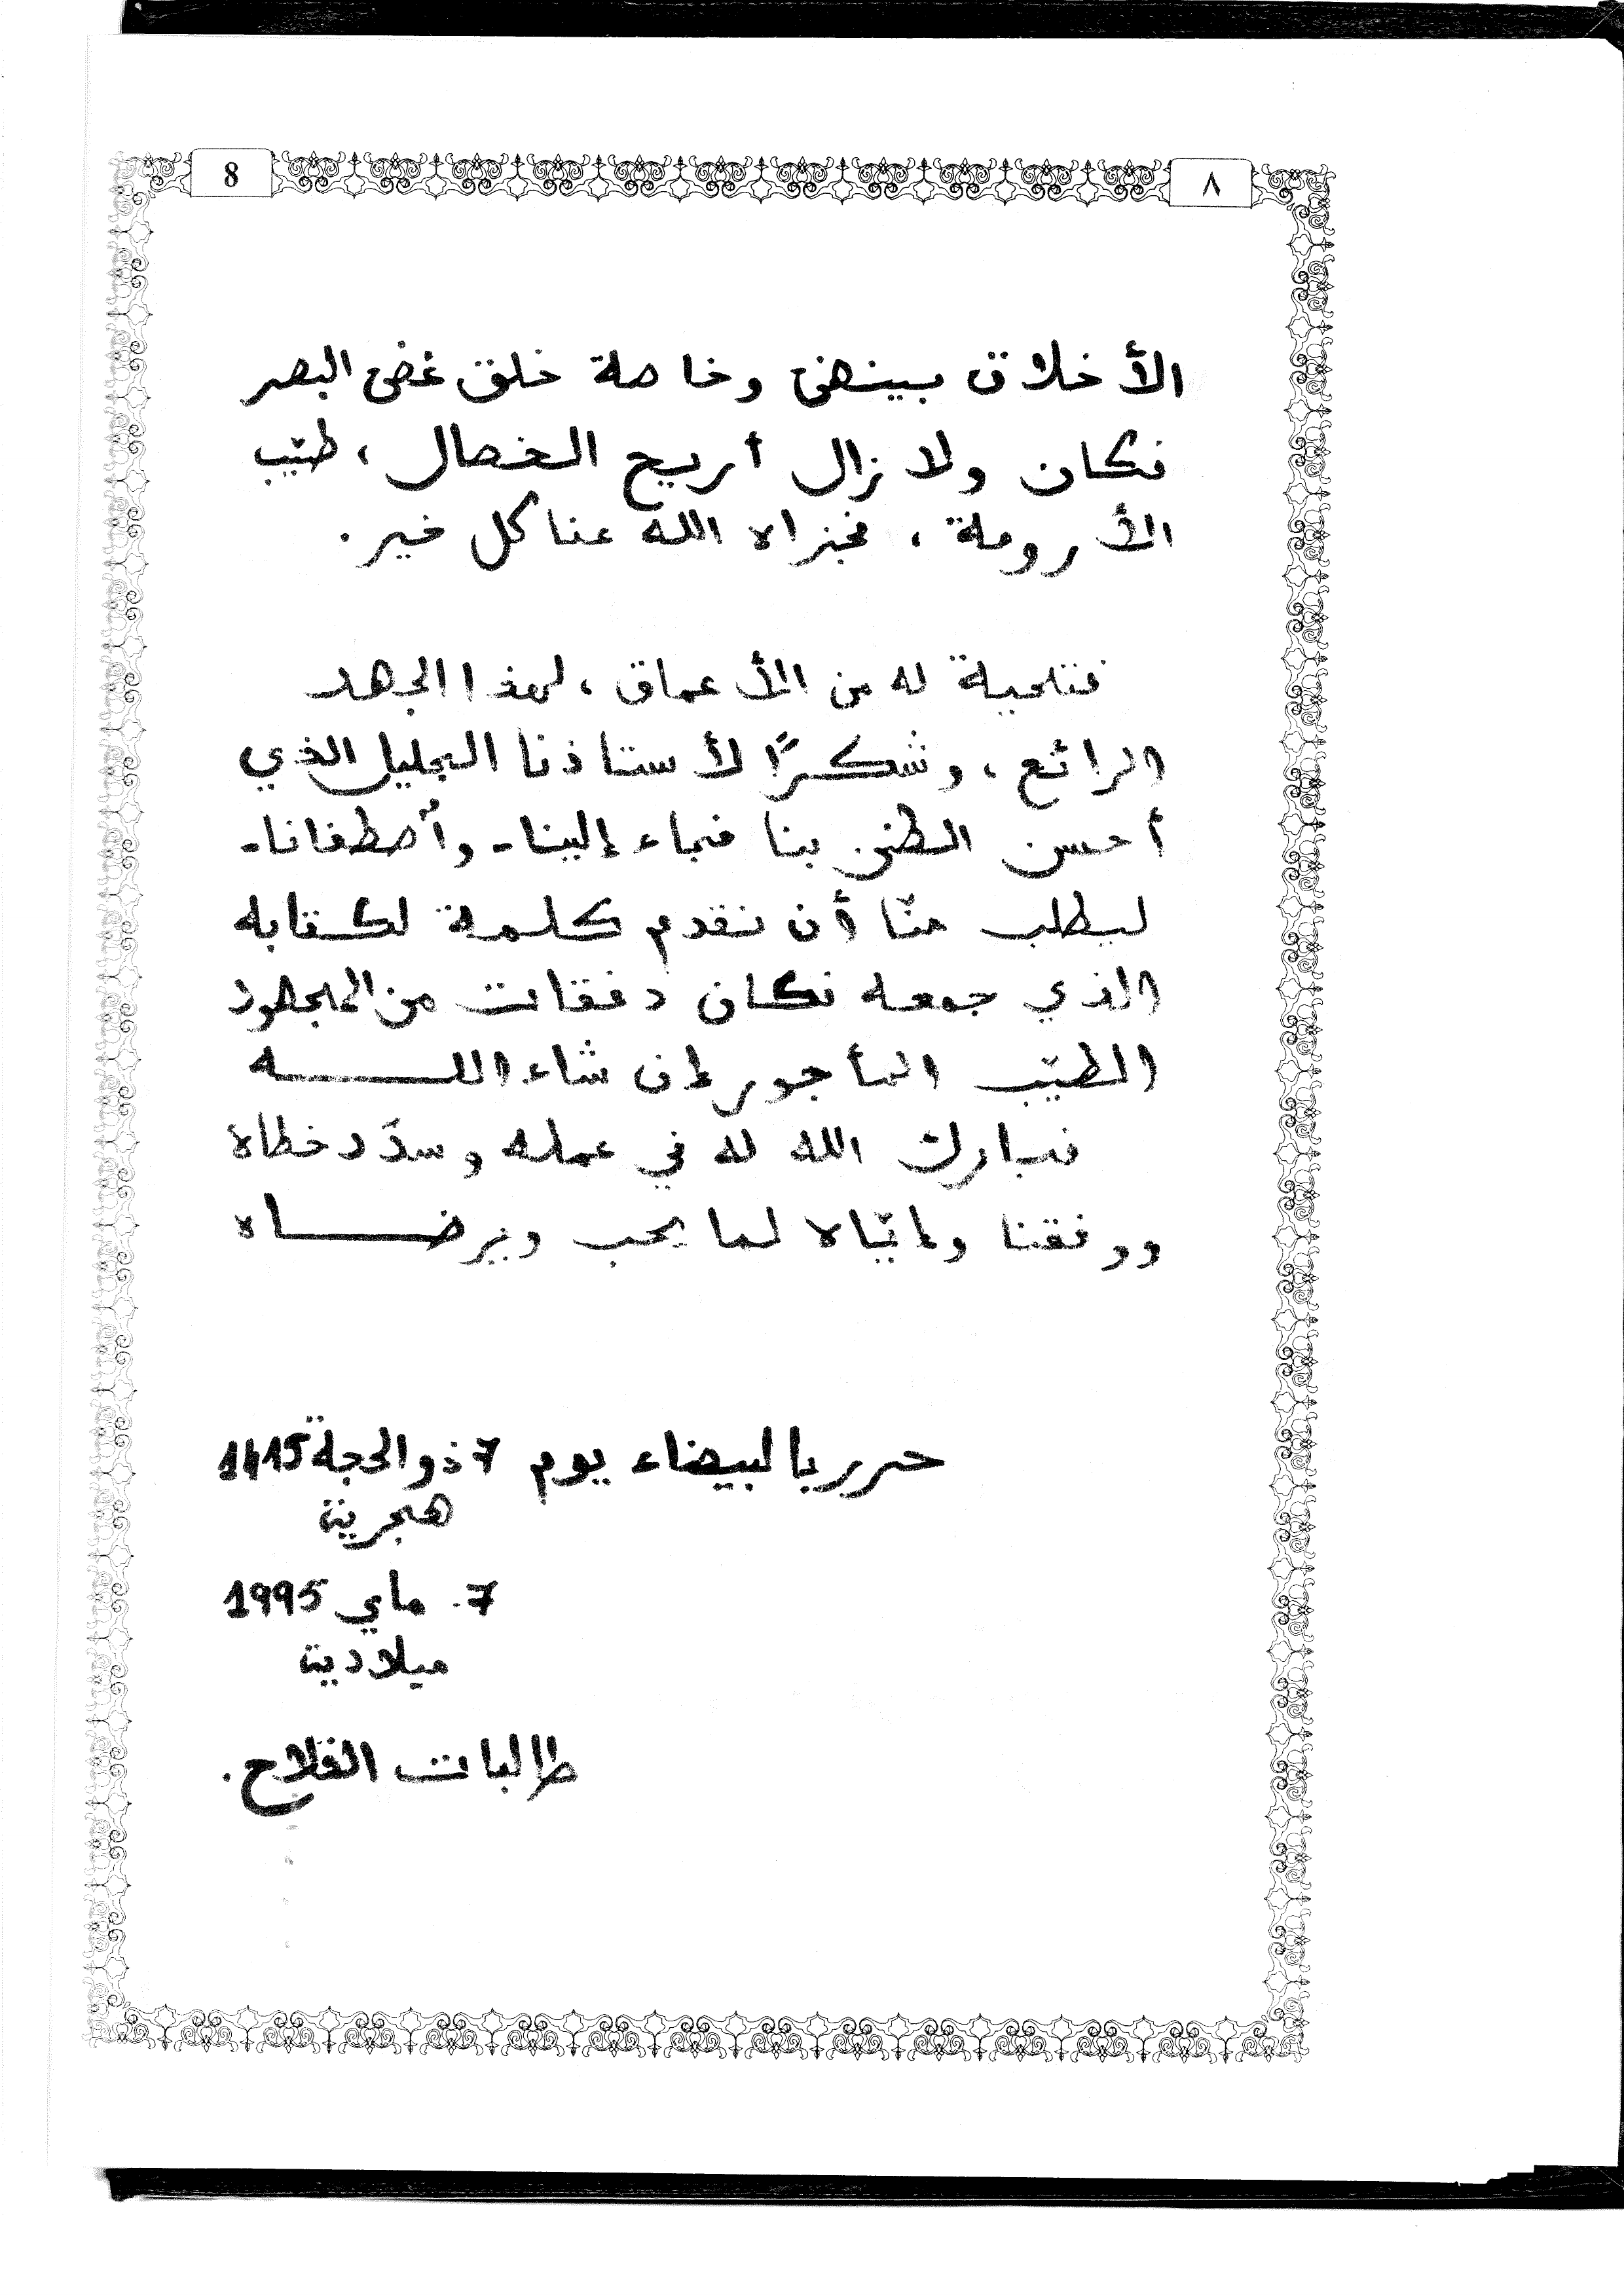 8
٨
الأخلاق بينهن وخاصة خلق غض البصر
فكان ولا زال أريج الخصال، طيّب
الأرومة، فجزاه الله عنا كل خير.
فتحية له من الأعماق، لهذا الجهد
الرائع، وشكرًا لأستاذنا الجليل الذي
أحسن الظن بنا فجاء إلينا - وأصطفانا -
ليطلب منّا أن نقدم كلمة لكتابه
الذي جمعه فكان دفقات من المجهود
الطيّب المأجور إن شاء اللـــــه
فبارك الله له في عمله وسدّد خطاه
ووفقنا وإيّاه لما يحب ويرضـــــاه
حرر بالبيضاء يوم 7 ذو الحجة 1415
هجرية
7. ماي 1995
ميلادية
طالبات الفلاح.